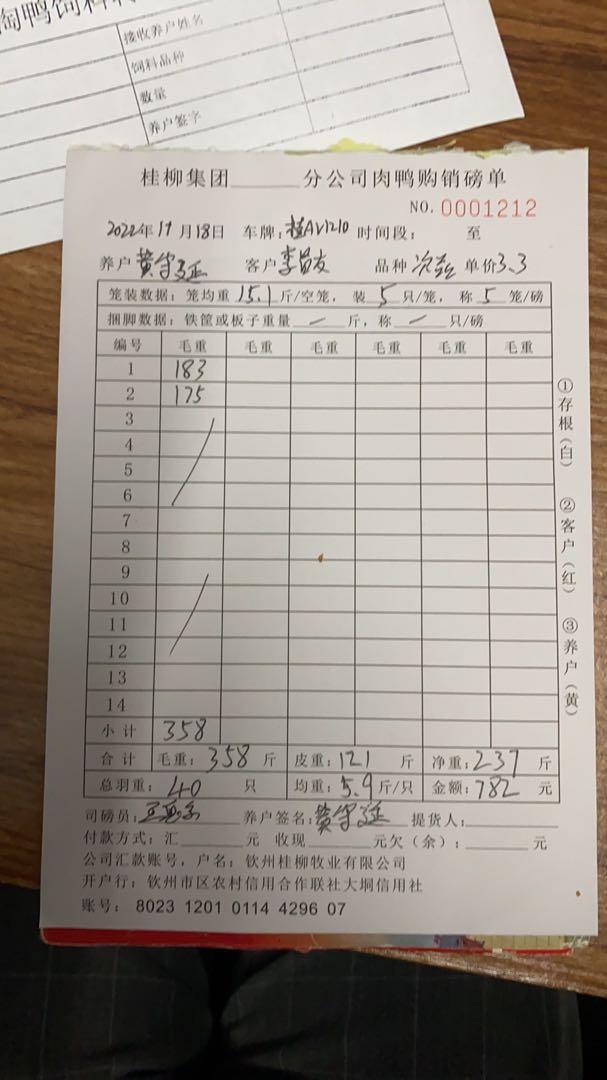 接收养户姓名
饲料品种
数量
养户签字
桂柳集团______分公司肉鸭购销磅单
NO. 0001212
2022年11月18日 车牌: 时间段: 至
养户 黄守延 客户 李 友 品种 单价3.3
笼装数据: 笼均重 15.1 斤/空笼, 装 5 只/笼, 称 5 笼/磅
捆脚数据: 铁筐或板子重量 — 斤, 称 — 只/磅
编号 毛重 毛重 毛重 毛重 毛重 毛重
1 183
2 175
3
4
5
6
7
8
9
10
11
12
13
14
小计 358
合计 毛重: 358 斤 皮重: 121 斤 净重: 237 斤
总羽重: 40 只 均重: 5.9 斤/只 金额: 782 元
司磅员: 养户签名: 黄守延 提货人:
付款方式: 汇______元 收现______元欠(余):______元
公司汇款账号, 户名: 钦州桂柳牧业有限公司
开户行: 钦州市区农村信用合作联社大垌信用社
账号: 8023 1201 0114 4296 07
①存根(白) ②客户(红) ③养户(黄)